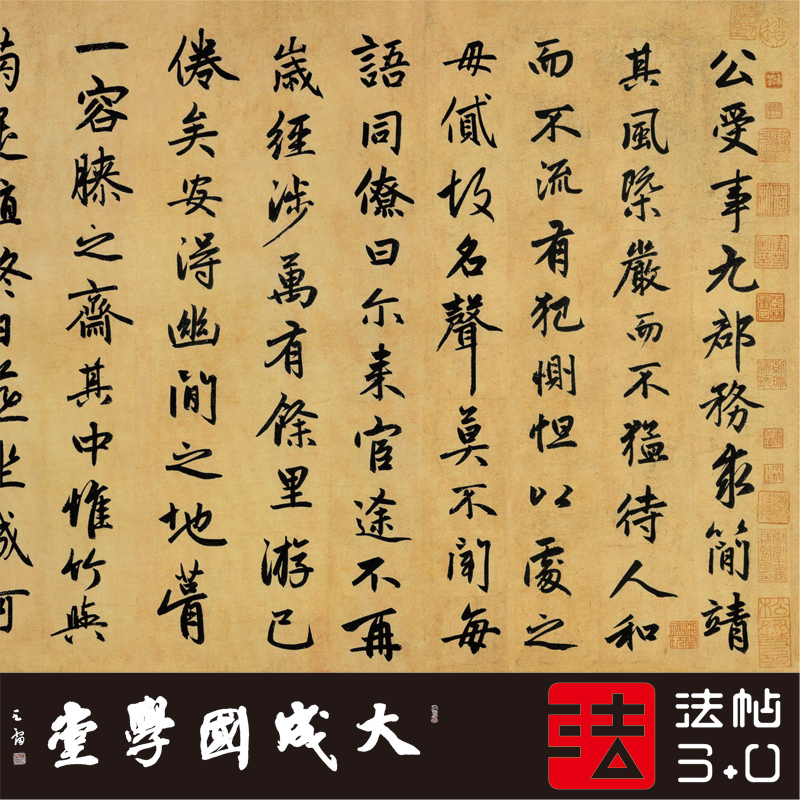 公受事九郡務求簡靖
其風槩嚴而不猛待人和
而不流有犯惻怛以處之
毋故名聲莫不聞每
語同僚曰尔来官途不再
歲經涉萬有餘里游已
倦矣安得幽閒之地葺
一容膝之齋其中惟竹與
大成國學堂
法
法帖
3.0